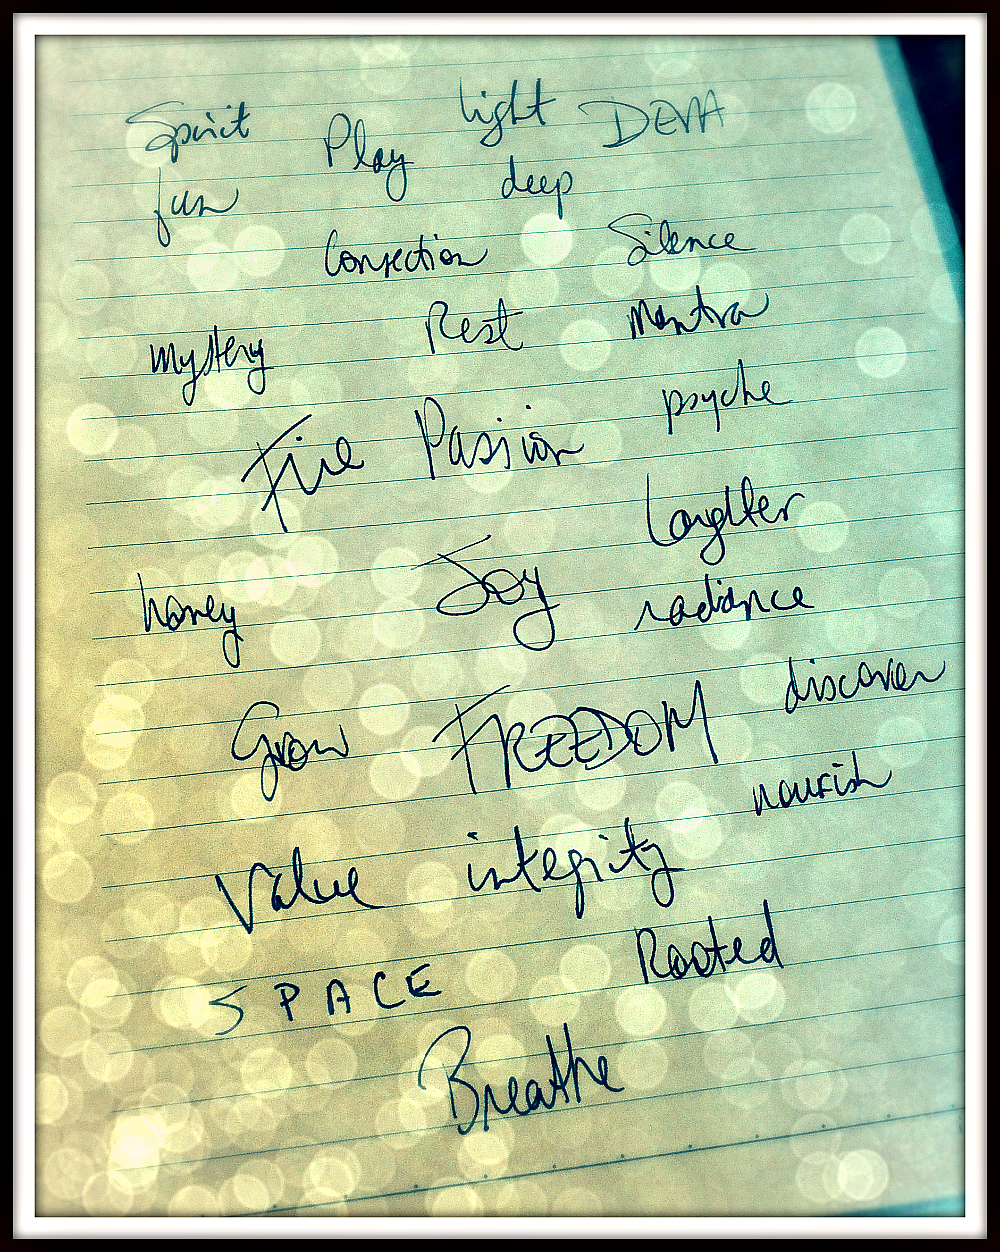 Spirit Play light DEVA
fun deep
Connection Silence
mystery Rest Mantra
Fire Passion psyche
Laughter
honey Joy radiance
Grow FREEDOM discover
Value integrity nourish
SPACE Rooted
Breathe